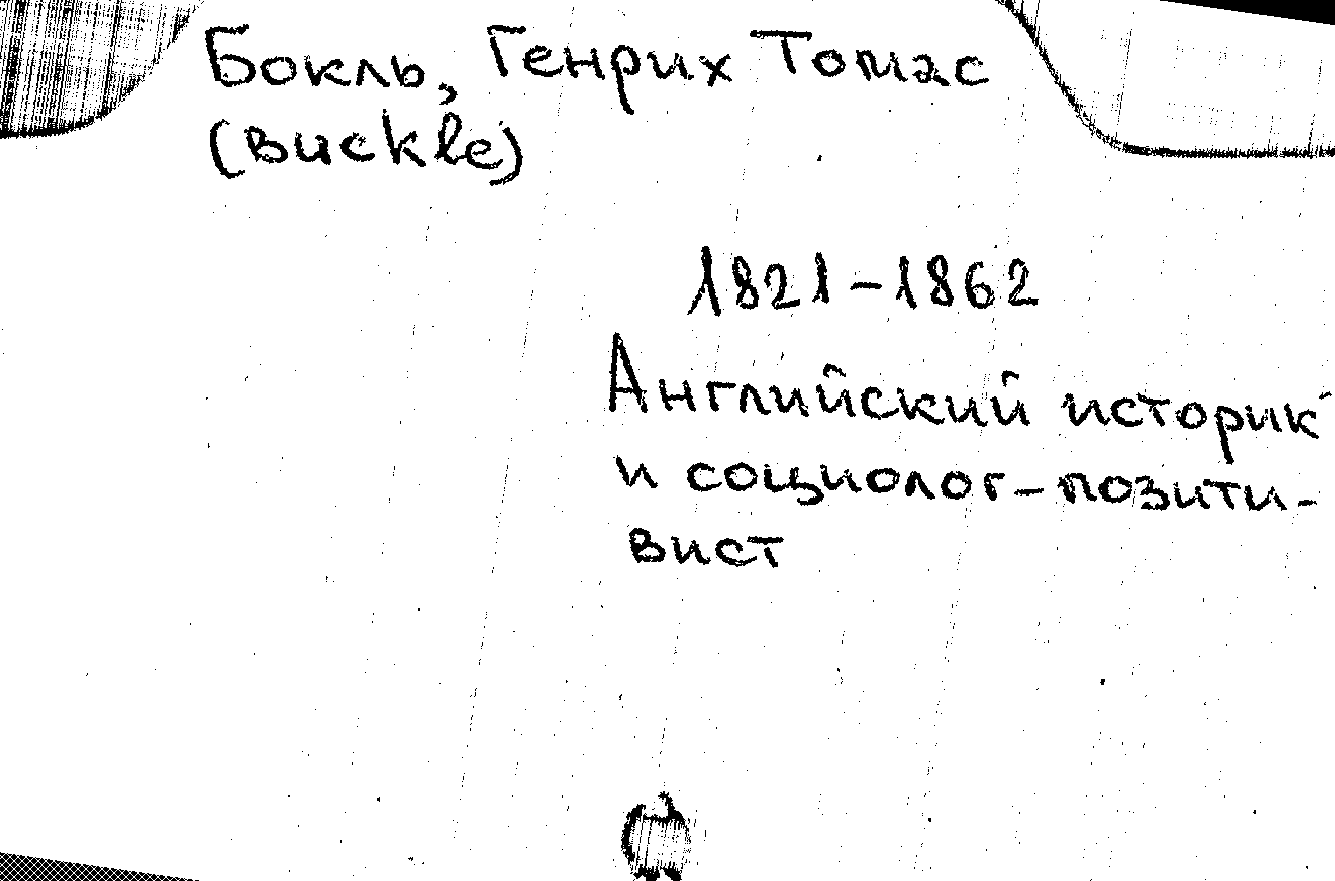 Бокль, Генрих Томас
(Buckle)
1821-1862
Английский историк
и социолог-позити-
вист